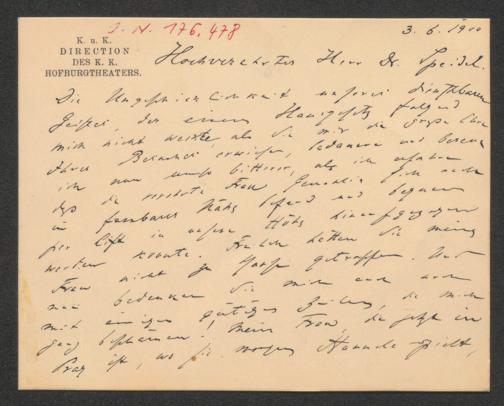 J. N. 176.478
K. u. K.
DIRECTION
DES K. K.
HOFBURGTHEATERS.
3. 6. 1900
Hochverehrter Herr Dr. Speidel.
Die Ungeschicklichkeit unseres dienstbaren
Geistes, der einem Hausgesetz folgend
mich nicht weckte, als Sie mir die große Ehre
Ihres Besuches erwiesen, bedauere und bereue
ich nun umso bitterer, als ich erfahre
daß die verehrte Frau Gemalin sich auch
in Nähe befand und bequem
per Lift in unsere Höhe hinaufgezogen
werden konnte. Freilich hätten Sie meine
Frau nicht zu Hause getroffen. Und
nun bedenken Sie mich auch noch
mit einigen gütigen Zeilen, die mich
ganz beschämen! Meine Frau, die jetzt in
Prag ist, wo sie morgen Hannele spielt,